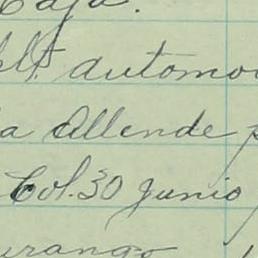 Caja.
automov
a Allende p
Col. 30 Junio
urango